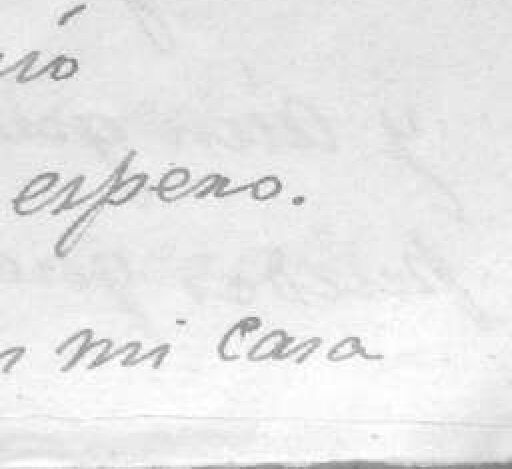 espero.
mi casa